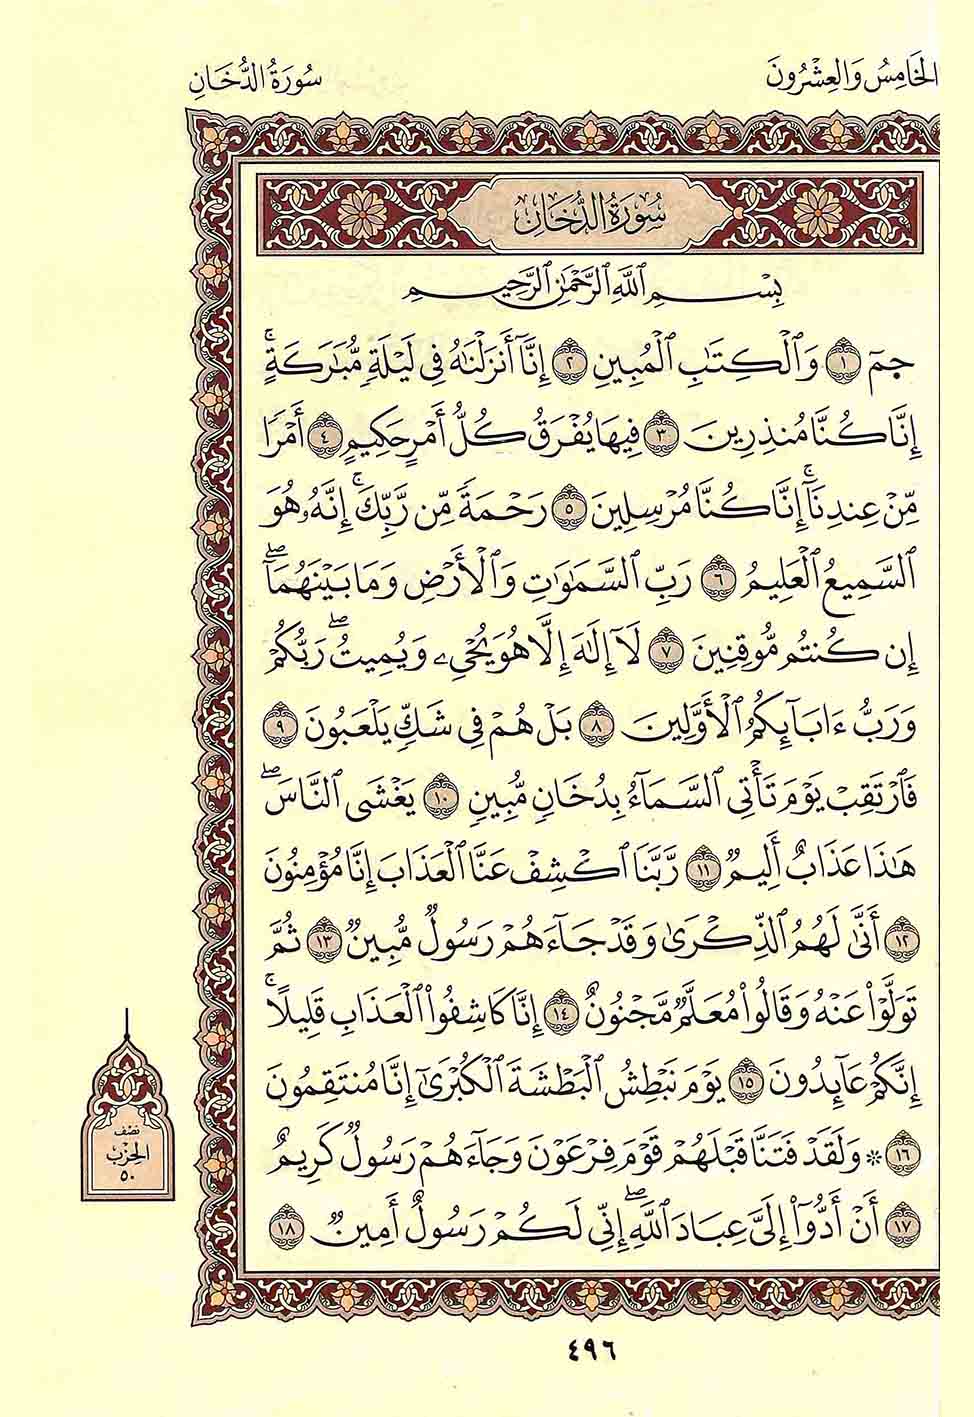 الخَامِسُ وَالعِشْرُونَ
سُورَةُ الدُّخَانِ
سُورَةُ الدُّخَانِ
بِسْمِ ٱللَّهِ ٱلرَّحْمَٰنِ ٱلرَّحِيمِ
حمٓ ١ وَٱلْكِتَٰبِ ٱلْمُبِينِ ٢ إِنَّآ أَنزَلْنَٰهُ فِى لَيْلَةٍ مُّبَٰرَكَةٍ ۚ
إِنَّا كُنَّا مُنذِرِينَ ٣ فِيهَا يُفْرَقُ كُلُّ أَمْرٍ حَكِيمٍ ٤ أَمْرًا
مِّنْ عِندِنَآ ۚ إِنَّا كُنَّا مُرْسِلِينَ ٥ رَحْمَةً مِّن رَّبِّكَ ۚ إِنَّهُۥ هُوَ
ٱلسَّمِيعُ ٱلْعَلِيمُ ٦ رَبِّ ٱلسَّمَٰوَٰتِ وَٱلْأَرْضِ وَمَا بَيْنَهُمَآ ۖ
إِن كُنتُم مُّوقِنِينَ ٧ لَآ إِلَٰهَ إِلَّا هُوَ يُحْىِۦ وَيُمِيتُ ۖ رَبُّكُمْ
وَرَبُّ ءَابَآئِكُمُ ٱلْأَوَّلِينَ ٨ بَلْ هُمْ فِى شَكٍّ يَلْعَبُونَ ٩
فَٱرْتَقِبْ يَوْمَ تَأْتِى ٱلسَّمَآءُ بِدُخَانٍ مُّبِينٍ ١٠ يَغْشَى ٱلنَّاسَ ۖ
هَٰذَا عَذَابٌ أَلِيمٌ ١١ رَّبَّنَا ٱكْشِفْ عَنَّا ٱلْعَذَابَ إِنَّا مُؤْمِنُونَ
١٢ أَنَّىٰ لَهُمُ ٱلذِّكْرَىٰ وَقَدْ جَآءَهُمْ رَسُولٌ مُّبِينٌ ١٣ ثُمَّ
تَوَلَّوْا۟ عَنْهُ وَقَالُوا۟ مُعَلَّمٌ مَّجْنُونٌ ١٤ إِنَّا كَاشِفُوا۟ ٱلْعَذَابِ قَلِيلًا ۚ
إِنَّكُمْ عَآئِدُونَ ١٥ يَوْمَ نَبْطِشُ ٱلْبَطْشَةَ ٱلْكُبْرَىٰٓ إِنَّا مُنتَقِمُونَ
١٦ * وَلَقَدْ فَتَنَّا قَبْلَهُمْ قَوْمَ فِرْعَوْنَ وَجَآءَهُمْ رَسُولٌ كَرِيمٌ
١٧ أَنْ أَدُّوٓا۟ إِلَىَّ عِبَادَ ٱللَّهِ ۖ إِنِّى لَكُمْ رَسُولٌ أَمِينٌ ١٨
نصف
الحزب
٥٠
٤٩٦